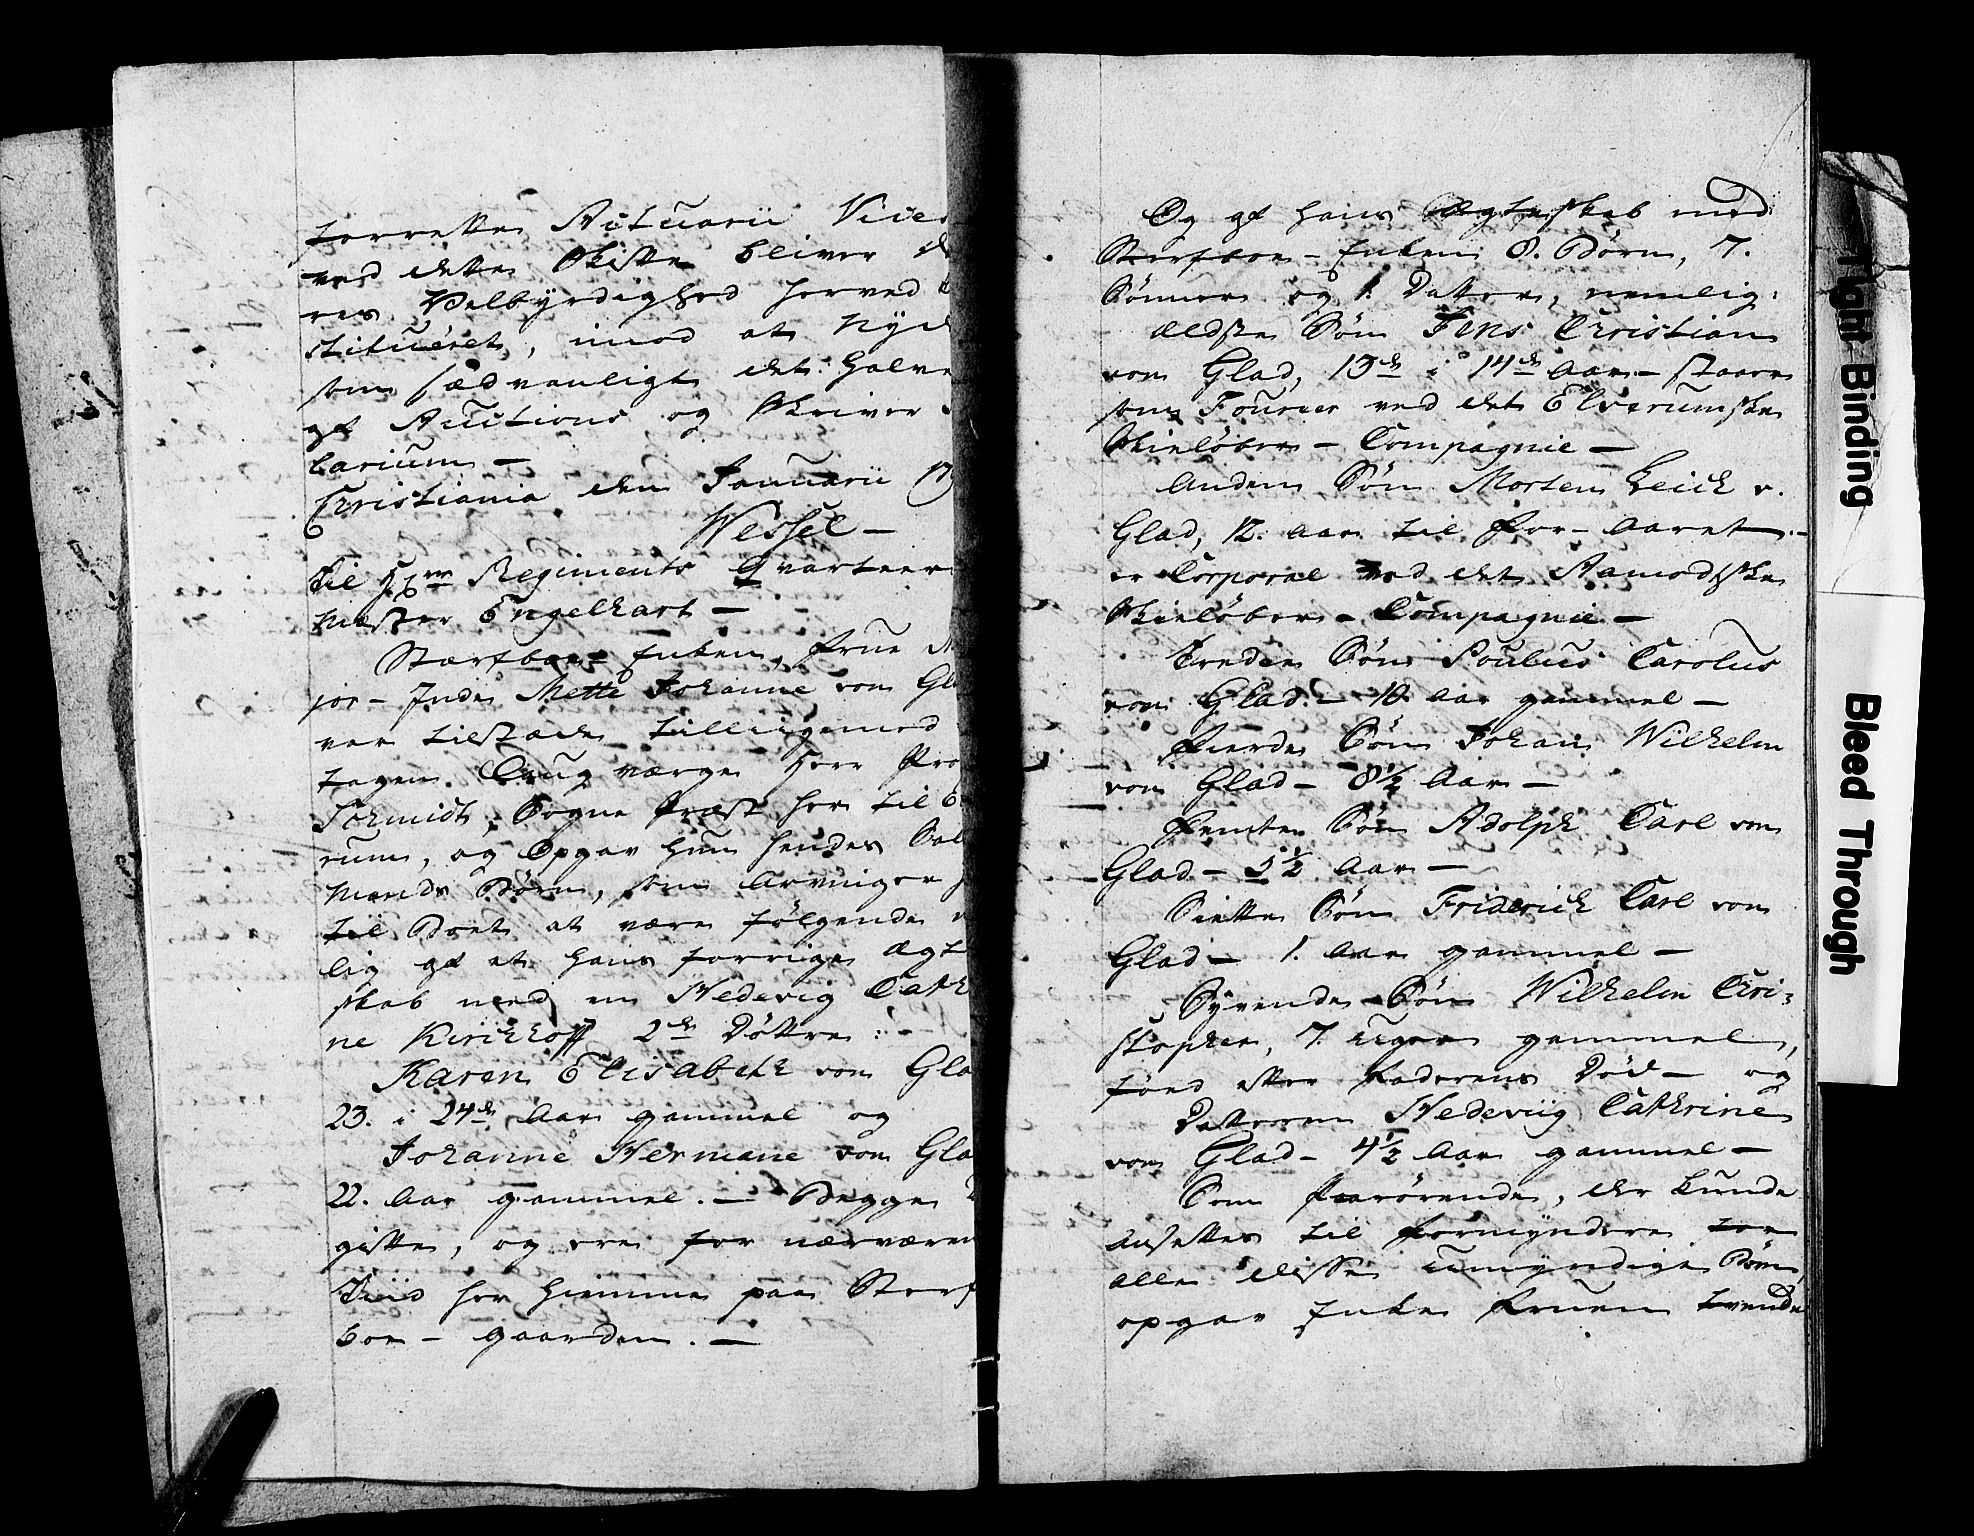 forrette Actuarii Vices
ved dette Skifte bliver
res Velbyrdighed herved
stitueret, imod at nyde
som sædvanligt det halve
af Auctions og Skriver
larium —
Christiania den Januarii 17
Wessel —
Til Hrr Regiments Qvarteer
mester Engelhart —
Stærfboe Enken, Frue Ma
jor-Inde Mette Johanne von Gla
var tilstæde tilligemed
tagen Laugværge Herr Pro
Schmidt, Sogne Præst her til El
rum, og Opgav hun hendes Sal
Mands Børn, som Arvinger
til Boet at være følgende
lig af et hans forrige Ægte
skab med en Hedevig Cathri
ne Kirchhoff 2de Døttre :-
Karen Elisabeth von Gla
23. i 24de Aar gammel og
Johanne Hermane von Gla
22. Aar gammel. — Begge
gifte, og ere for nærværen
Tiid her hiemme paa Sterf
boe-gaarden. —
Og af hans Ægteskab med
Sterfboe-Enken 8. Børn, 7.
Sønner og 1. Datter, nemlig:
Ældste Søn Jens Christian
von Glad, 13de i 14de Aar — staaer
som Fourer ved det Elverumske
Skieløber-Compagnie —
Anden Søn Morten Leich v.
Glad, 12. Aar til For-Aaret —
er Corporal ved det Aamodtske
Skieløber-Compagnie —
Tredie Søn Poulus Carolus
von Glad. — 10. Aar gammel —
Fierde Søn Johan Wilhelm
von Glad — 8½ Aar —
Femte Søn Adolph Carl von
Glad — 5½ Aar —
Siette Søn Friderich Carl von
Glad — 1. Aar gammel —
Syvende Søn Wilhelm Chri-
stopher, 7. Uger gammel,
fød efter Faderens Død — og
Datteren Hedeviig Cathrine
von Glad — 4½ Aar gammel —
Som Paarørende, der kunde
ansettes til Formyndere for
alle disse umyndige Børn,
opgav Enke Fruen tvende
Tight Binding
Bleed Through